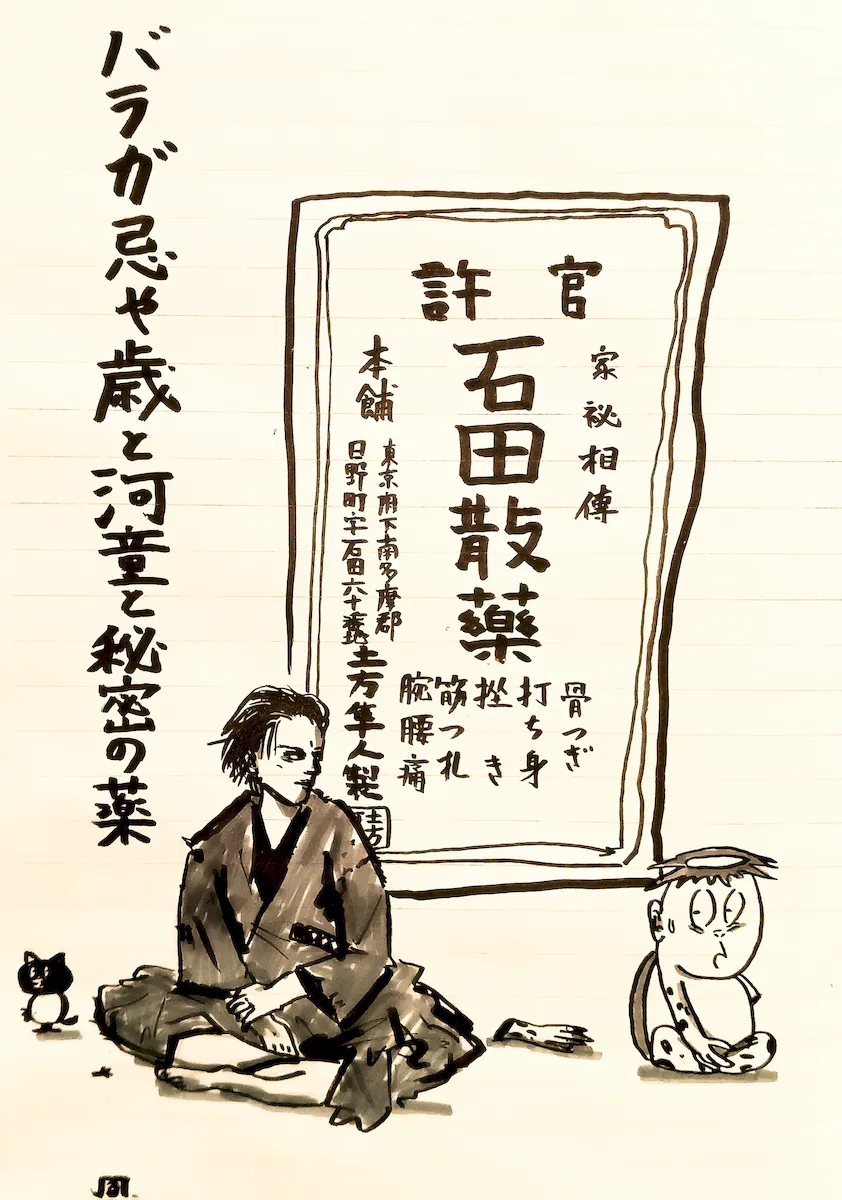 官許
家祕相傳
石田散藥
骨つぎ
打ち身
挫き
筋つれ
腕腰痛
本舗
東京府下南多摩郡
日野町字石田六十番地
土方隼人製
土方
バラガ忌や歳と河童と秘密の薬